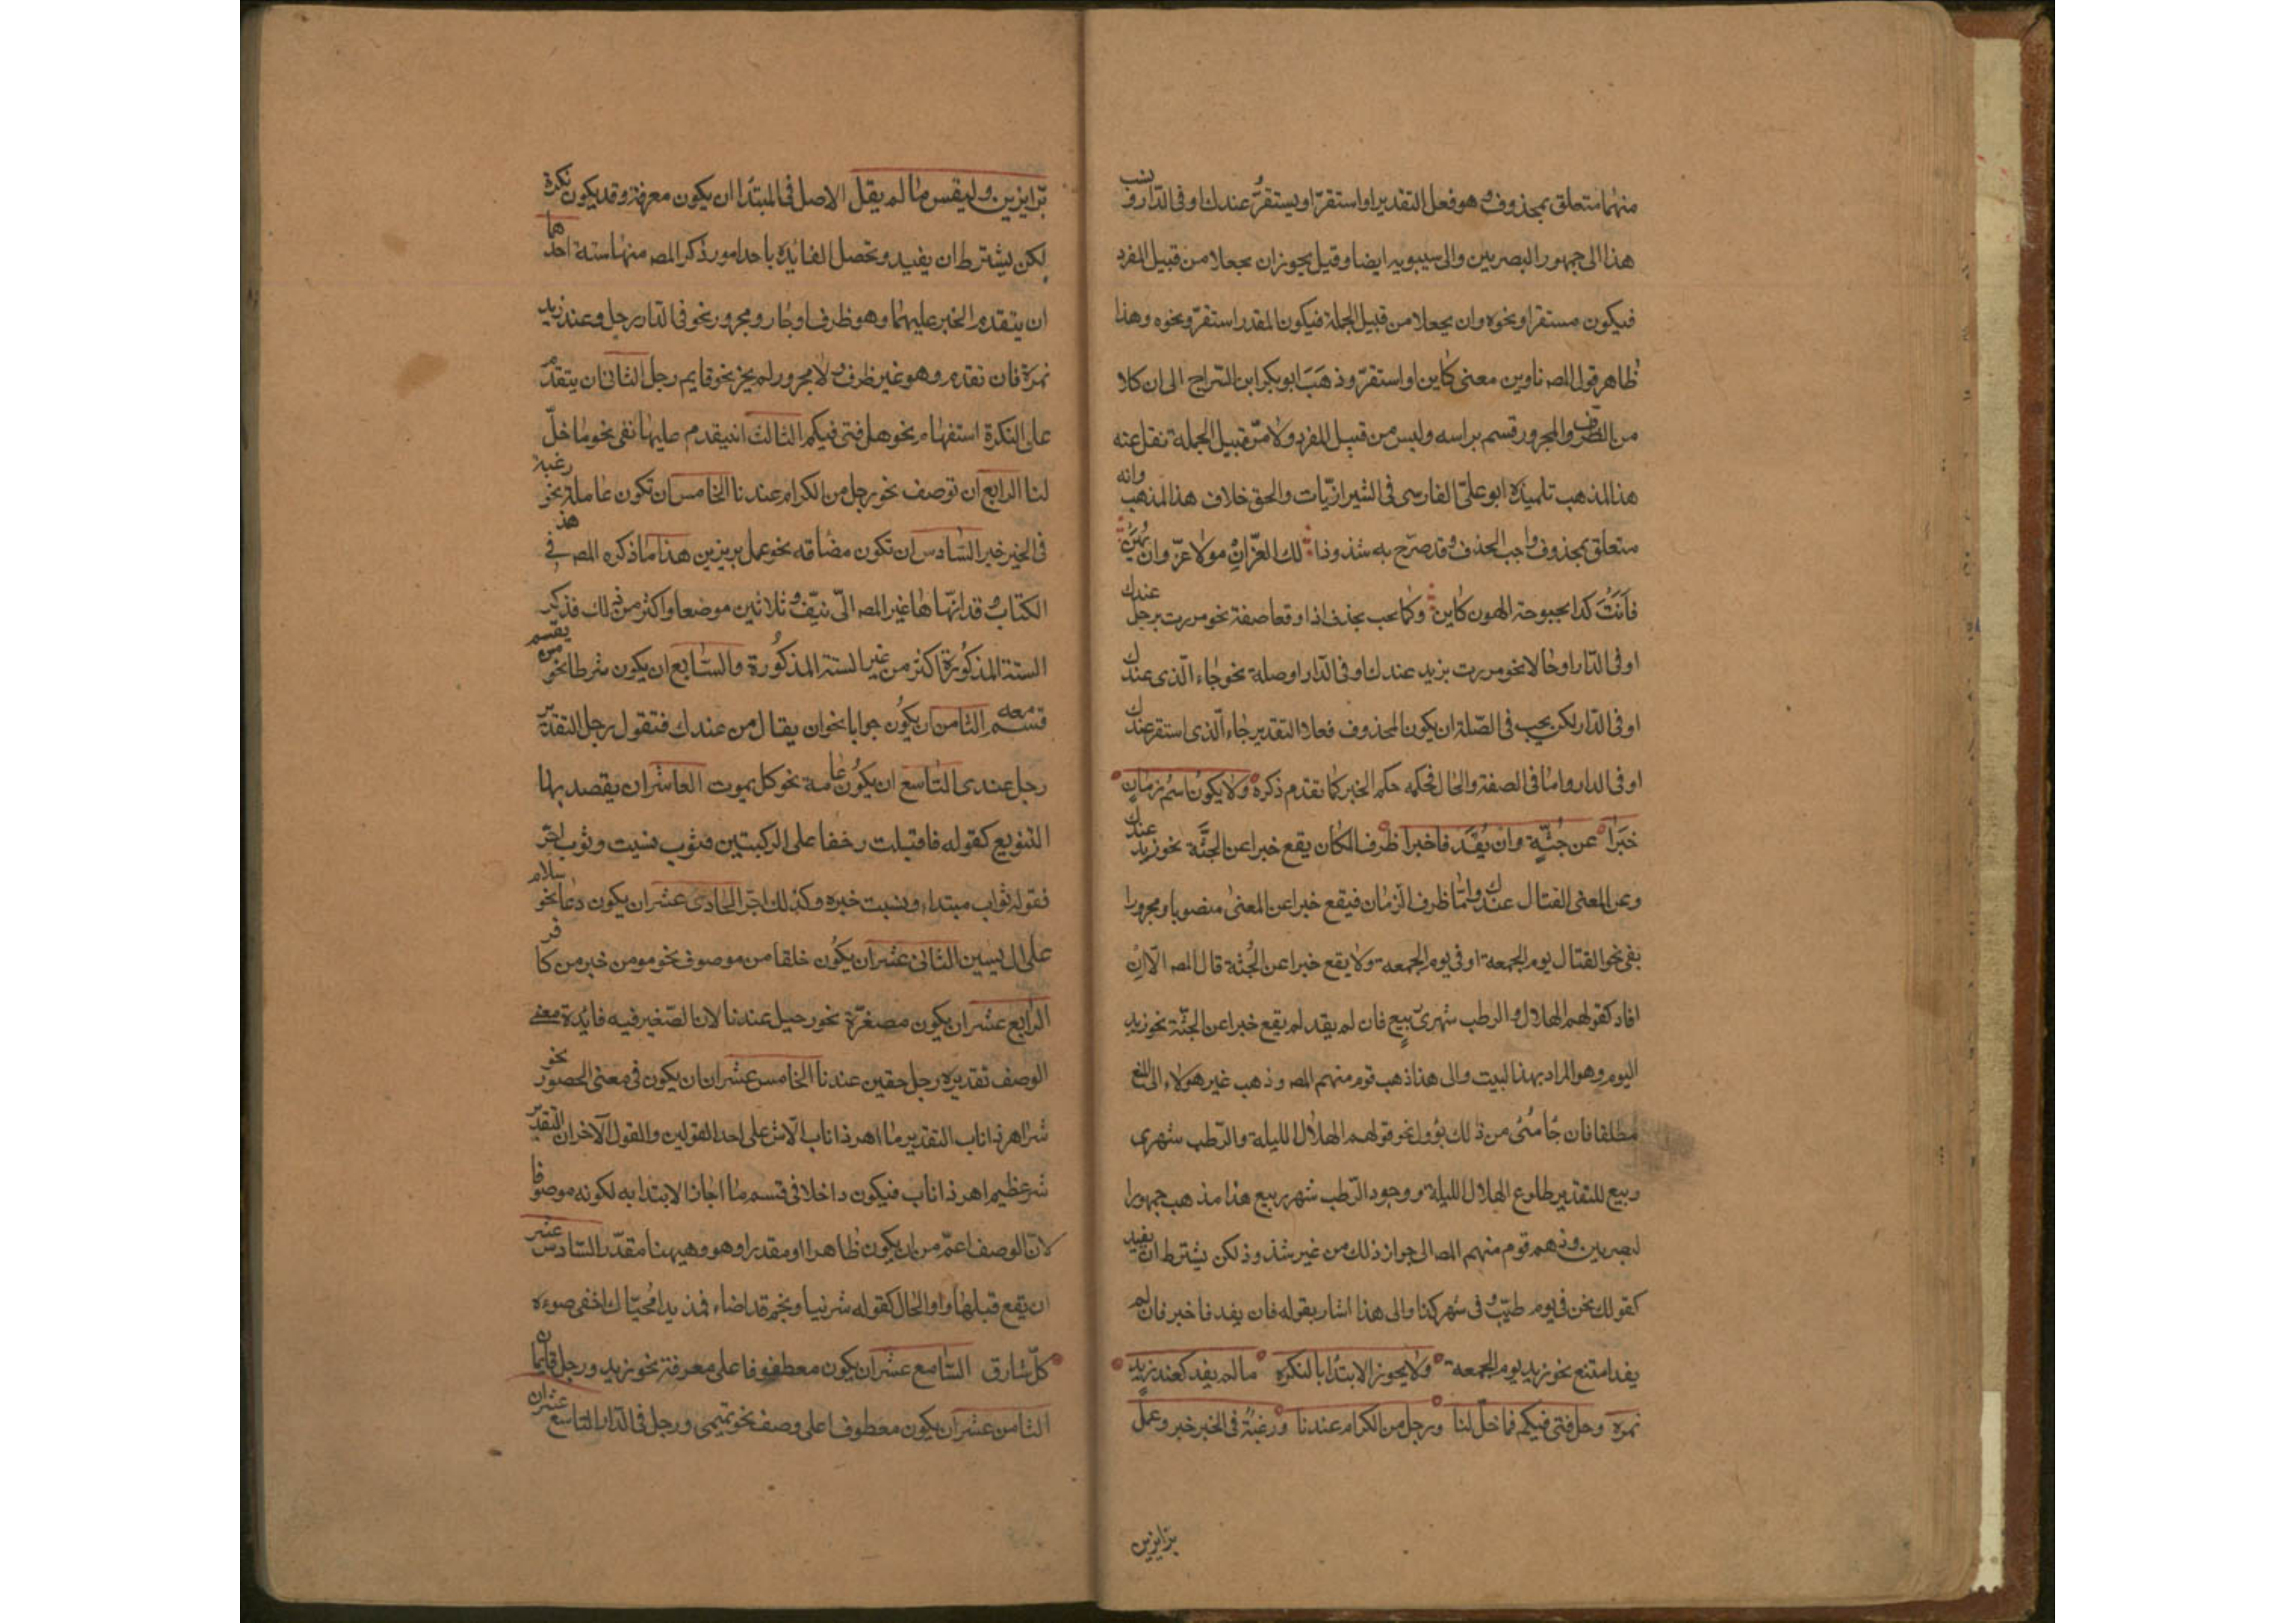 منهما متعلق بمحذوف وهو فعل التقدير او استقرّ او يستقرّ عندك او فى الدار ونسب
هذا الى جمهور البصريين والى سيبويه ايضا وقيل يجوز ان يجعلا من قبيل المفرد
فيكون مستقرا ونحوه وان يجعلا من قبيل الجملة فيكون المقدر استقرّ ونحوه وهذا
ظاهر قول المص ناوين معنى كاين او استقرّ وذهَبَ ابو بكر ابن السّراج الى ان كلا
من الظرف والمجرور قسم براسه وليس من قبيل المفرد ولا من قبيل الجملة نقل عنه
هذا المذهب تلميذه ابو علىّ الفارسى فى الشيرازيّات والحق خلاف هذا المذهب وانه
متعلق بمحذوف واجب الحذف وقد صرّح به شذوذا لك العزّ ان مولاك عزّ وان يَهُن
فَاَنتَ لدا بحبوحة الهون كاين وكما يجب بحذف اذا وقعا صفة نحو مررت برجل عندك
او فى الدار او حالا نحو مررت بزيد عندك او فى الدار او صلة نحو جاء الّذى عندك
او فى الدّار لكن يجب فى الصّلة ان يكون المحذوف فعلا التقدير جاء الّذى استقر عندك
او فى الدار واما فى الصفة والحال فحكمه حكم الخبر كما تقدم ذكره ولا يكون اسمُ زمانٍ
خبَرا عن جُثّةٍ وان يُفِد فاخبرا ظرف المكان يقع خبرا عن الجثّة نحو زيد عندك
وعن المعنى القتال عندك وامّا ظرف الزمان فيقع خبرا عن المعنى منصوبا ومجرورا
بفى نحو القتال يوم الجمعة او فى يوم الجمعة ولا يقع خبرا عن الجُثة قال المص الّا ان
افاد كقولهم الهلال والرطب شهرى ربيع فان لم يفد لم يقع خبرا عن الجثّة نحو زيد
اليوم وهو المراد بهذا البيت والى هذا ذهب قوم منهم المص وذهب غير هولاء الى المنع
مطلقا فان جا شئ من ذلك يؤول نحو قولهم الهلال الليلة والرّطب شهرى
ربيع للتقدير طلوع الهلال الليلة ووجود الرّطب شهر ربيع هذا مذهب جمهور ا
لبصريين وذهب قوم منهم المص الى جواز ذلك من غير شذوذ لكن يشترط ان يفيد
كقولك نحن فى يوم طيّب وفى شهر كذا والى هذا اشار بقوله فان يفد فاخبر فان لم
يفد امتنع نحو زيد يوم الجمعة ولا يجوز الابتدا بالنكره ما لم يفد كعند زيد
نمره وهل فتى فيكم فما خلّ لنا ورجل من الكرام عندنا ورغبةٌ فى الخير خير وعمل
برّ ايزين
برّ ايزين وليقس ما لم يقل الاصل فى المبتدا ان يكون معرفة وقد يكون نكرة
لكن يشترط ان يفيد وتحصل الفايدة باحد امور ذكر المص منها ستة احدها
ان يتقدم الخبر عليهما وهو ظرف او جار ومجرور نحو فى الدار رجل وعند زيد
نمرة فان تقدم وهو غير ظرف ولا مجرور لم يجز نحو قايم رجل الثانى ان يتقدم
على النكرة استفهام نحو هل فتى فيكم الثالث ان يتقدم عليها نفى نحو ما خلّ
لنا الرابع ان توصف نحو رجل من الكرام عندنا الخامس ان تكون عاملة نحو رغبة
فى الخير خير السّادس ان تكون مضافه نحو عمل بر يزين هذا ما ذكره المص فى هذ
الكتاب وقد انّهاها غير المص الى نيّف وثلاثين موضعا واكثر من ذلك فذكر
الستة المذكورة اكثر من غير الستة المذكُورة والسّابع ان يكون شرطا نحو من يقسم
قسم معه الثامن ان يكُون جوابا نحو ان يقال من عندك فتقول رجل التقدير
رجل عندى التّاسع ان يكُون عامة نحو كل يموت العاشر ان يقصد بها
التنويع كقوله فاقبلت زحفا على الركبتين فثوب نسيت وثوب اجرّ
فقوله ثواب مبتداء ونسيت خبره وكذلك اجرّ الحادى عشر ان يكون دعا نحو سلام
على ال ليسين الثانى عشر ان يكُون خلفا من موصوف نحو مومن خير من كافر
الرّابع عشر ان يكون مصغرّة نحو رجيل عندنا لان الصّغير فيه فايدة معنى
الوصف تقديره رجل حقير عندنا الخامس عشر ان يكون فى معنى الحصور نحو
شر اهر ذا ناب التقدير ما اهر ذا ناب الّا شر على احد القولين والقول الآخر ان التقدير
شر عظيم اهر ذا ناب فيكون داخلا فى قسم ما اجاز الابتدا به لكونه موصوفا
لانّ الوصف اعمّ من ان يكون ظاهرا او مقدرا وهو وهيهنا مقدّر السّادس عشر
ان يقع قبلها واو الحال كقوله شرنيا ونجم قد اضاء فمذ يدا محيّاك اخفى ضوءه
كلّ شارق السّابع عشر ان يكون معطوفا على معرفة نحو زيد ورجل قايمان
الثامن عشر ان يكون معطوفا على وصف نحو تميمى ورجل فى الدّار التاسع عشر ان